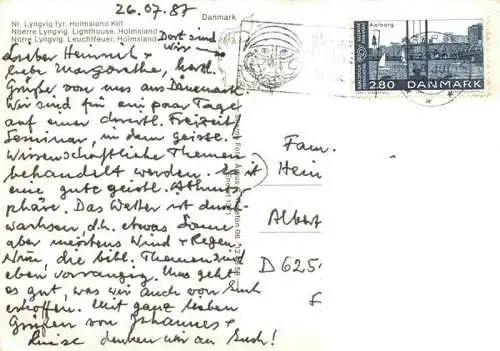 26.07.87
Danmark
Nr. Lyngvig fyr. Holmsland Klit
Noerre Lyngvig. Lighthouse. Holmsland
Nörre Lyngvig. Leuchtfeuer. Holmsland
Dort sind
wir
Lieber Heinrich,
liebe Margarethe, herzl.
Grüße von uns aus Dänemark
Wir sind für ein paar Tage
auf einer christl. Freizeit
Seminar, in dem geistl. -
Wissenschaftliche Themen
behandelt werden. Es ist
eine gute geistl. Athmos-
phäre. Das Wetter ist durch-
wachsen, d.h. etwas Sonne
aber meistens Wind + Regen.
die bibl. Themen sind
eben vorrangig. Uns geht
es gut, was wir auch von Euch
erhoffen. Mit ganz lieben
Grüßen von Johannes +
Luise denken wir an Euch!
Aalborg
2.80 DANMARK
Fam.
Hein
Albert
D 625